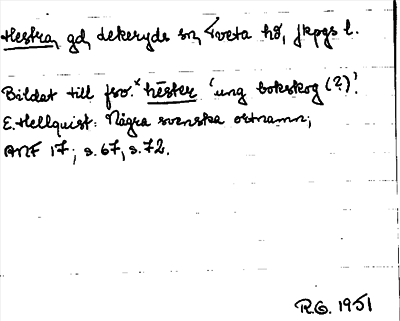 Hestra, gd, Lekeryds sn, Tveta hd, Jkpgs l.
Bildat till fsv. *hester 'ung bokskog (?)'.
E. Hellquist: Några svenska ortnamn;
ANF 17; s. 67, s. 72.
R.G. 1951